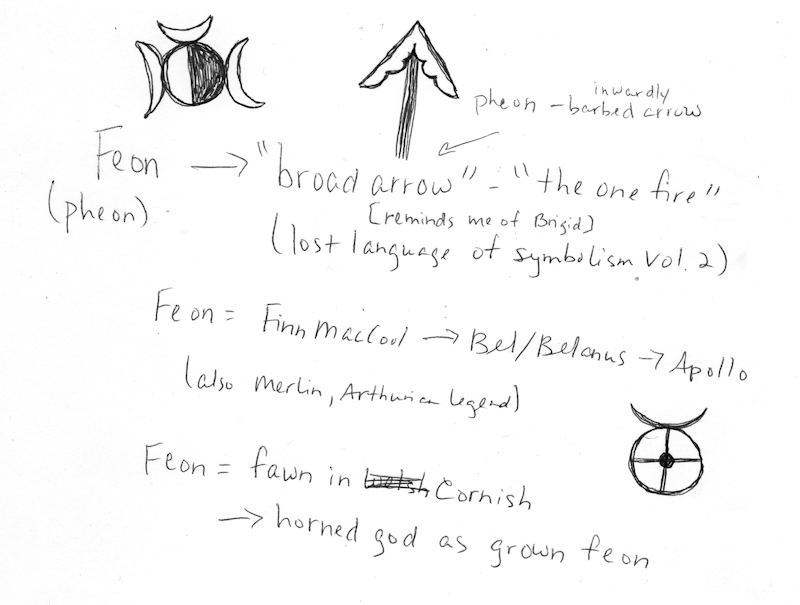 inwardly
pheon - barbed arrow
Feon → "broad arrow" - "the one fire"
(pheon)
[reminds me of Brigid]
(lost language of symbolism vol. 2)
Feon = Finn MacCool → Bel/Belanus → Apollo
(also Merlin, Arthurian legend)
Feon = fawn in Cornish
→ horned god as grown feon